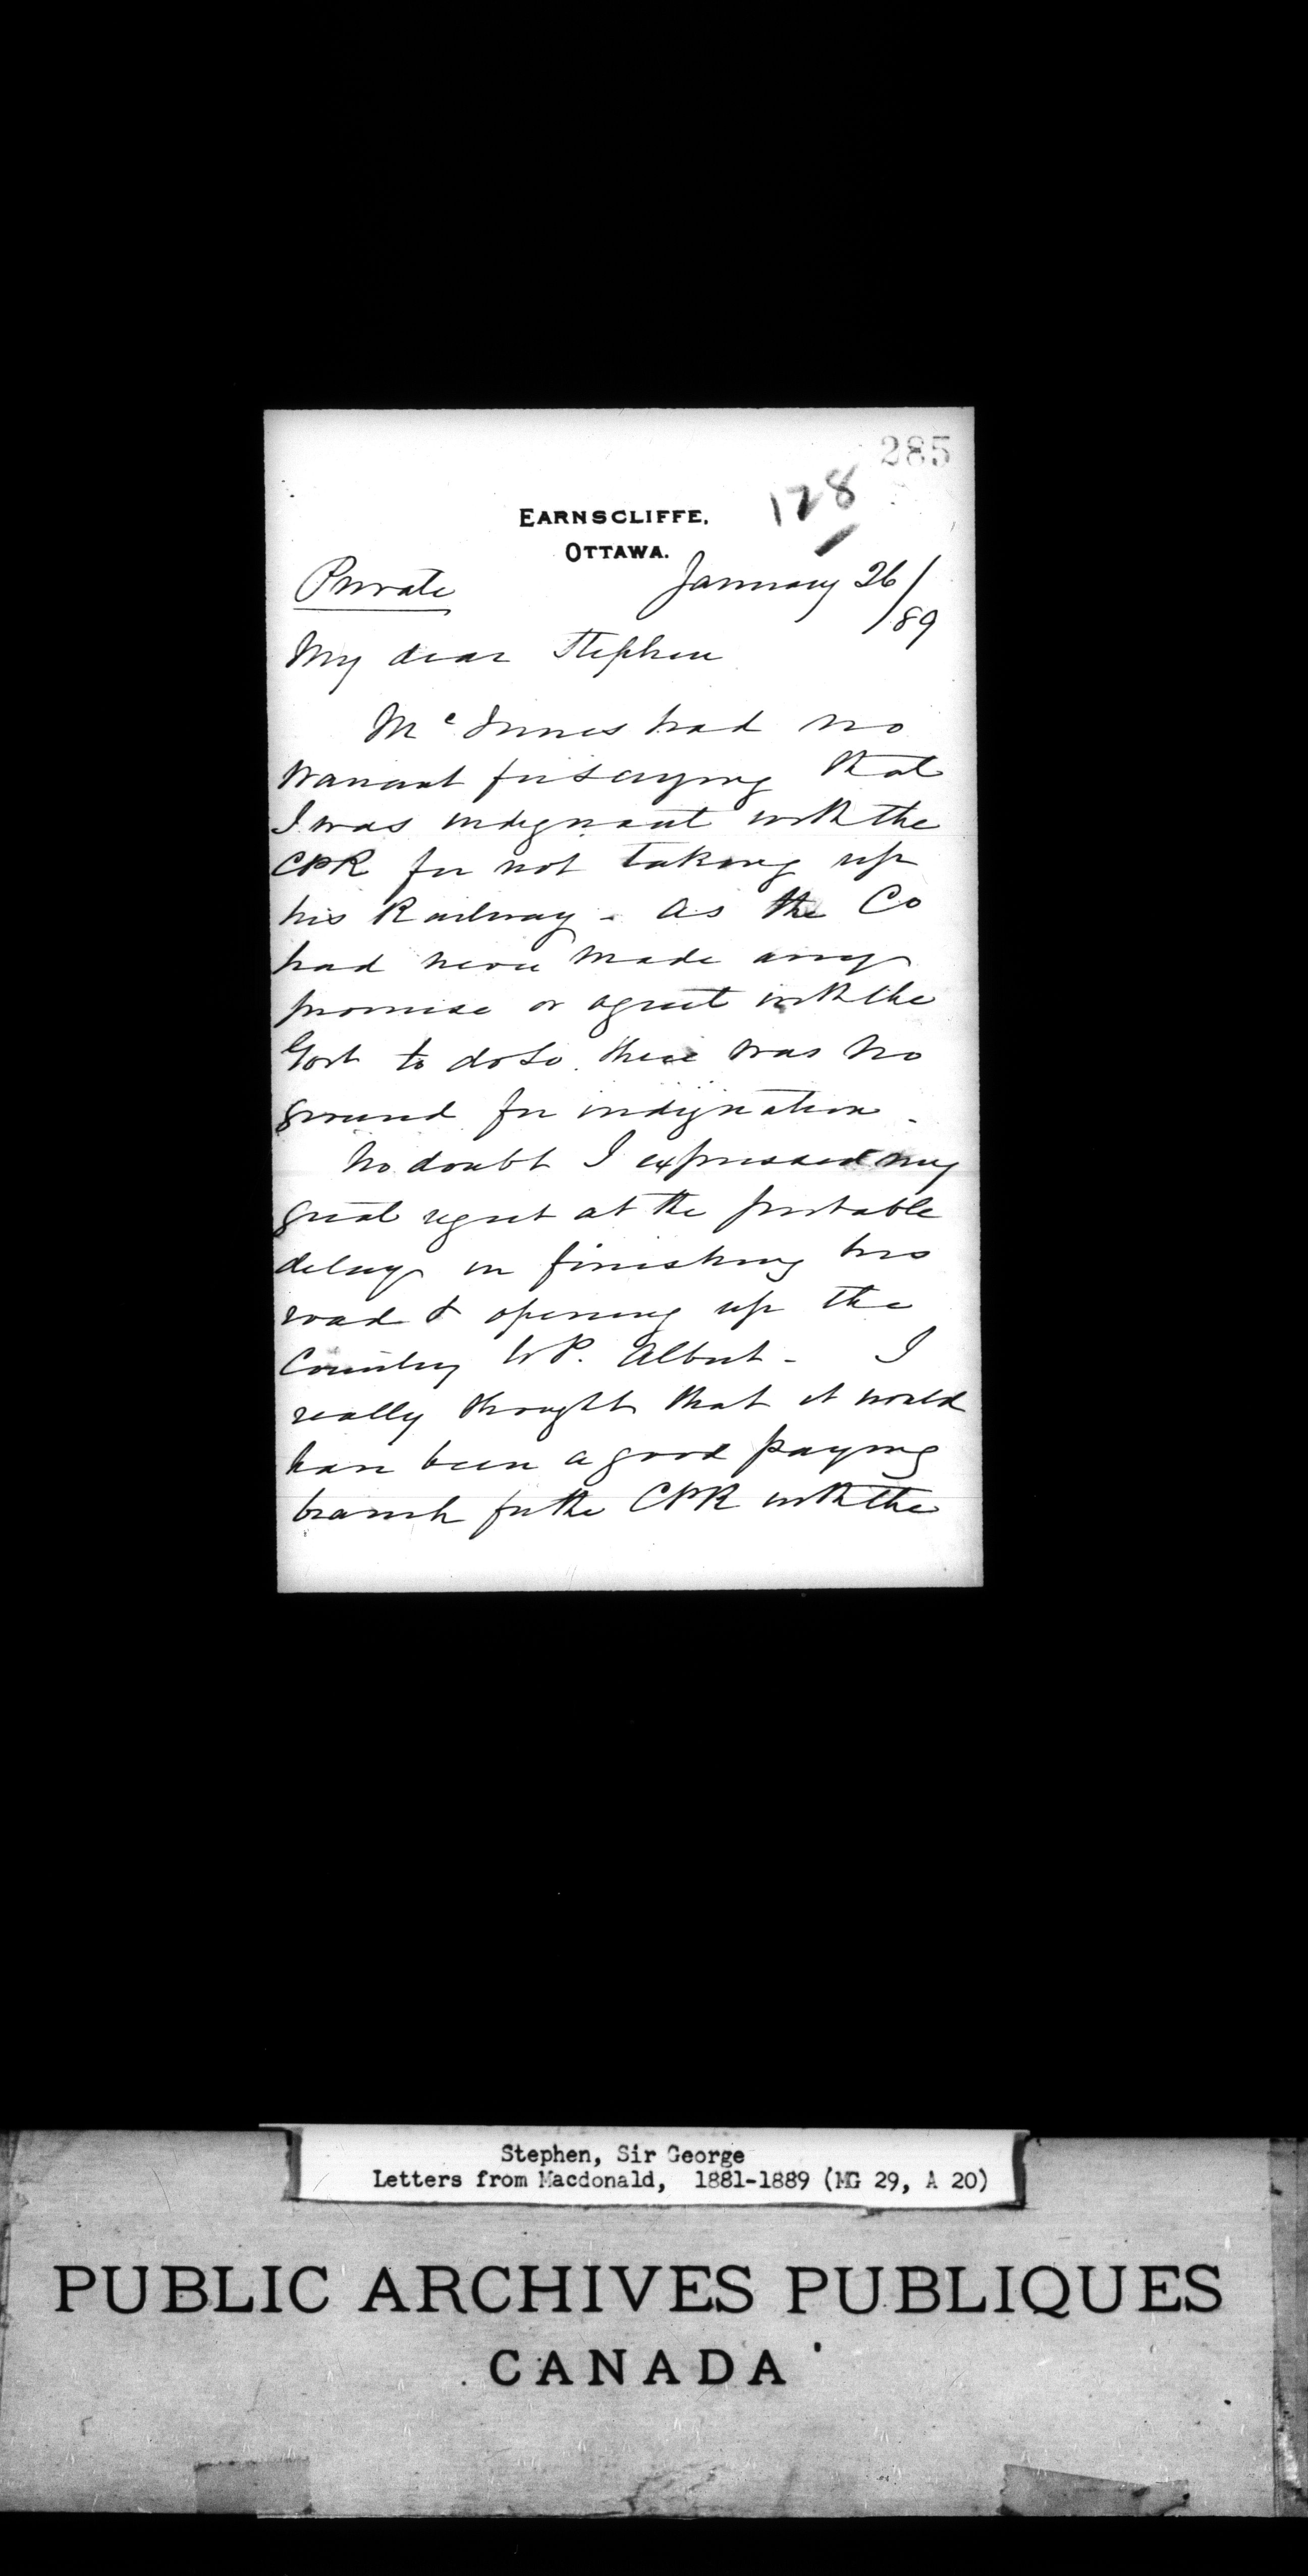 285
128
EARNSCLIFFE,
OTTAWA.
Private January 26/
/89
My dear Stephen
McInnes had no
warrant for saying that
I was indignant with the
CPR for not taking up
his Railway - As the Co
had never made any
promise or agreet with the
Govt to do so. there was no
ground for indignation -
No doubt I expressed my
great regret at the probable
delay in finishing his
road & opening up the
Country to P. Albert - I
really thought that it would
have been a good paying
branch for the CPR with the
Stephen, Sir George
Letters from Macdonald, 1881-1889 (MG 29, A 20)
PUBLIC ARCHIVES PUBLIQUES
CANADA